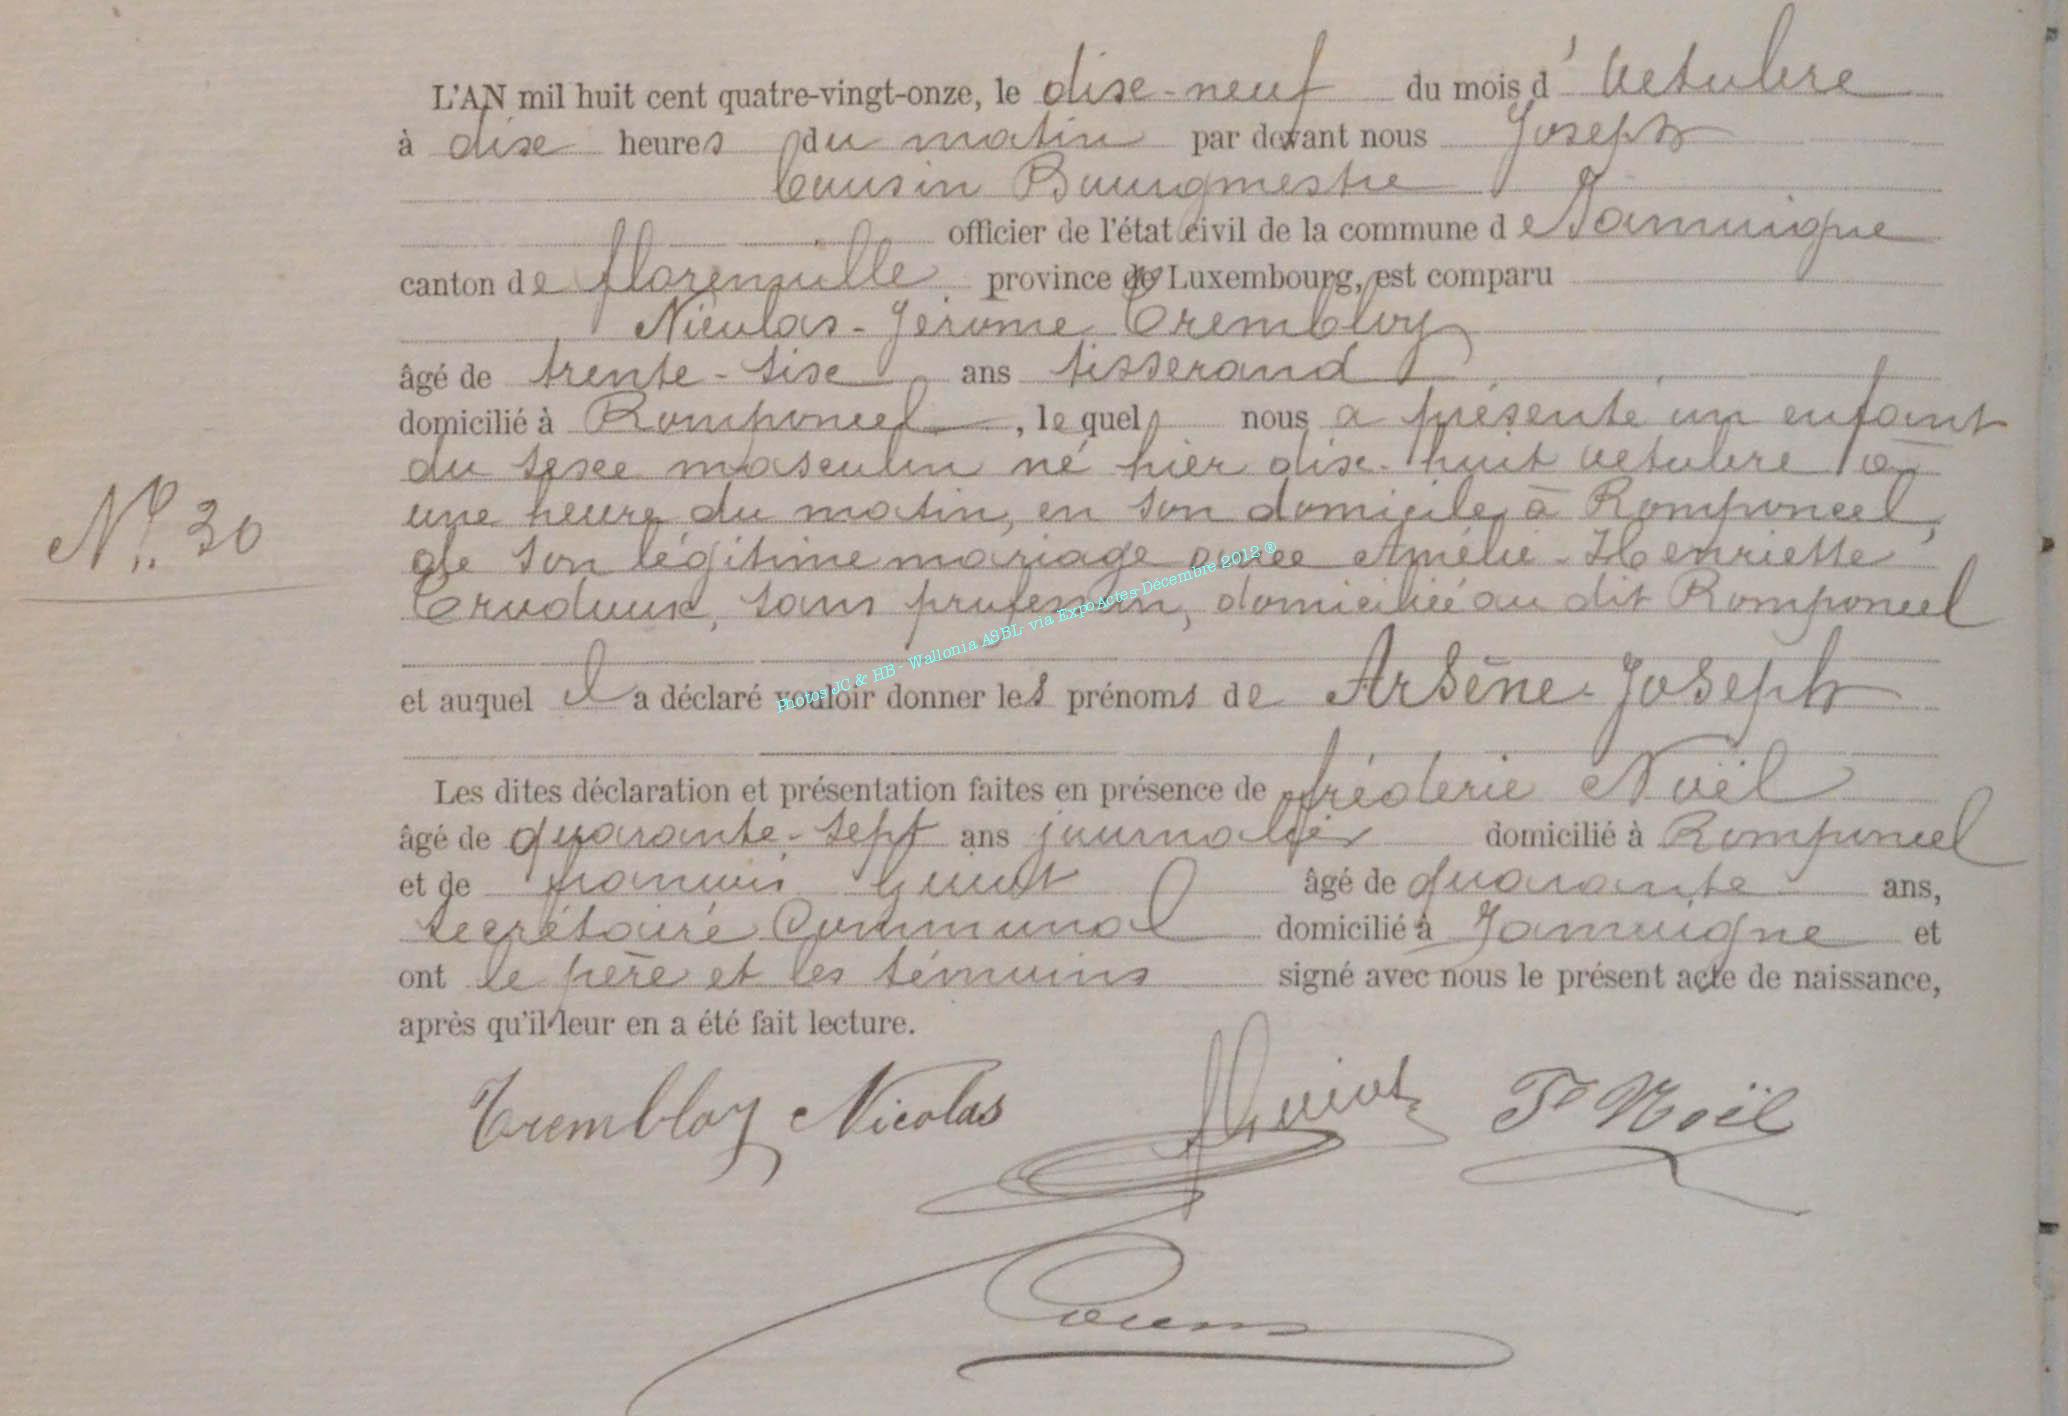 L'AN mil huit cent quatre-vingt-onze, le dix-neuf du mois d'Octobre
à dix heures du matin par devant nous Joseph
Cousin Bourgmestre
officier de l'état civil de la commune de Jamoigne
canton de florenville province de Luxembourg, est comparu
Nicolas-Jérome Trembloy
âgé de trente-six ans tisserand
domicilié à Romponcel, lequel nous a présenté un enfant
du sexe masculin né hier dix-huit octobre à
une heure du matin, en son domicile à Romponcel,
N° 30
de son légitime mariage avec Amélie-Henriette
sans profession, domiciliée au dit Romponcel
et auquel il a déclaré vouloir donner les prénoms de Arsène-Joseph
Les dites déclaration et présentation faites en présence de fréderic Noël
âgé de quarante-sept ans journalier domicilié à Romponcel
et de françois Guiot âgé de quarante ans,
secrétaire Communal domicilié à Jamoigne et
ont le père et les témoins signé avec nous le présent acte de naissance,
après qu'il leur en a été fait lecture.
Trembloy Nicolas Guiot Fr Noël
Cousin
Photos JC & HB - Wallonia ASBL- via ExpoActes Décembre 2012 ®